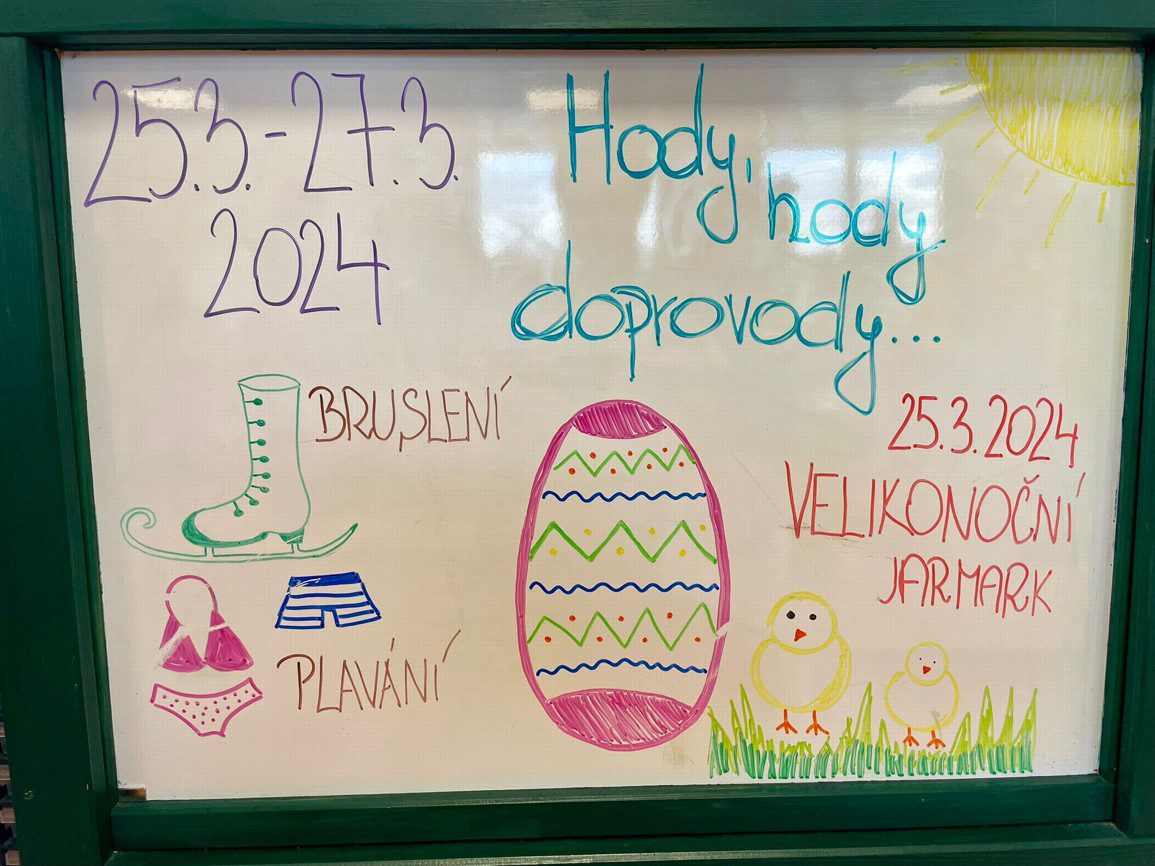 25.3.-27.3.
2024
Hody,
hody
doprovody...
BRUSLENÍ
25.3.2024
VELIKONOČNÍ
JARMARK
PLAVÁNÍ